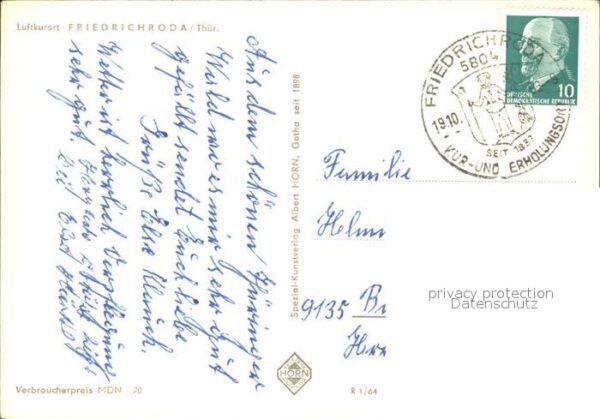 Luftkurort FRIEDRICHRODA/Thür.
Aus dem schönen Thüringer
Wald wo es mir sehr gut
gefällt sendet Euch liebe
Grüße Else
Wetter ist herrlich Verpflegung
sehr gut.
Verbraucherpreis MDN ,20
Spezial-Kunstverlag Albert HORN, Gotha seit 1898
HORN
R 1/64
FRIEDRICHRODA
5804
19.10.
SEIT 1837
KUR- UND ERHOLUNGSORT
10
DEUTSCHE
DEMOKRATISCHE REPUBLIK
Familie
Helm
9135 B
Her
privacy protection
Datenschutz